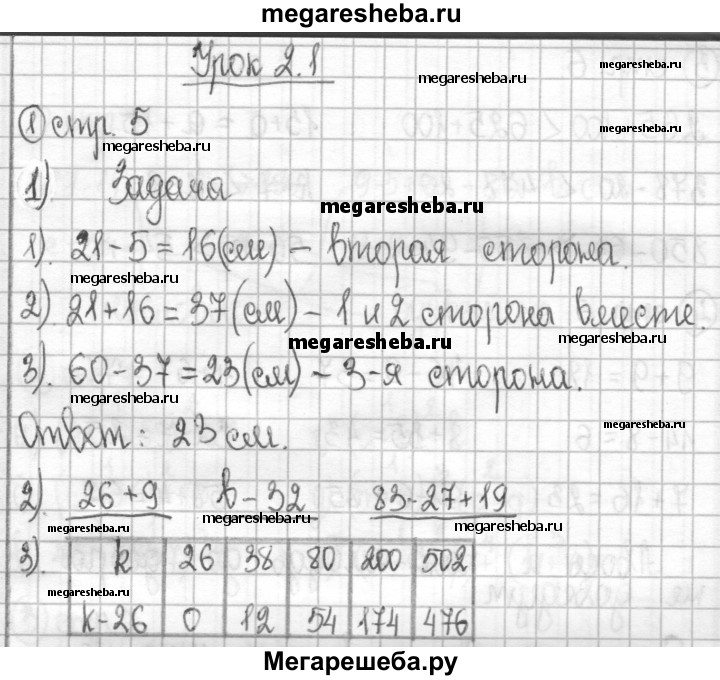 megaresheba.ru
Урок 2.1
megaresheba.ru
megaresheba.ru
① стр. 5
megaresheba.ru
1) Задача
megaresheba.ru
1). 21-5=16(см) - вторая сторона.
megaresheba.ru
2) 21+16=37(см) - 1 и 2 сторона вместе.
megaresheba.ru
megaresheba.ru
3). 60-37=23(см) - 3-я сторона.
megaresheba.ru
megaresheba.ru
Ответ: 23 см.
2) 26+9 b-32 83-27+19
megaresheba.ru
megaresheba.ru
megaresheba.ru
3). k 26 38 80 200 502
megaresheba.ru
k-26 0 12 54 174 476
Мегарешеба.ру